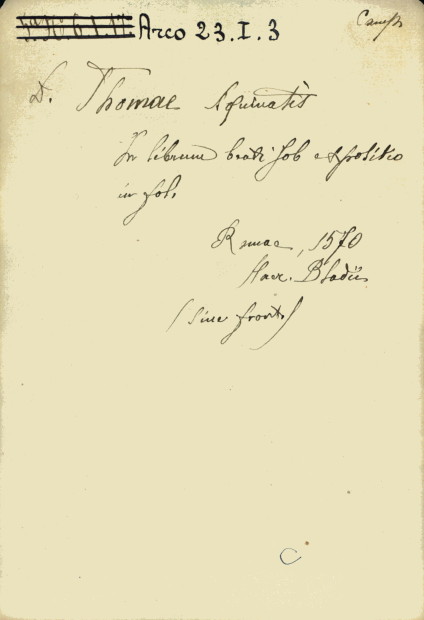 Arco 23.I.3
D. Thomae Aquinatis
In librum beati Job expositio
in fol.
Romae, 1570
Haer. Bladii
(sine front.)
C